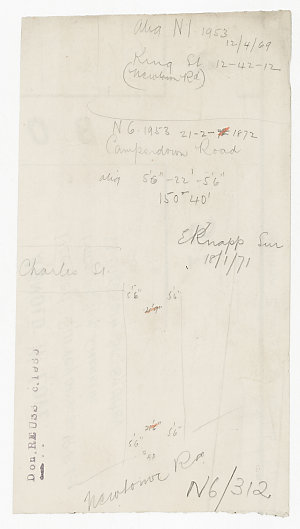 alig N1.1953
12/4/69
King St 12-42-12
(Newtown Rd)
N6.1953 21-2-1872
Camperdown Road
alig 5'6"-22'-5'6"
150° 40'
E Knapp Sur
18/1/71
Charles St.
5'6" 5'6"
5'6" 5'6"
Newtown Rd
N6/312
Don. REUSS 6.1953